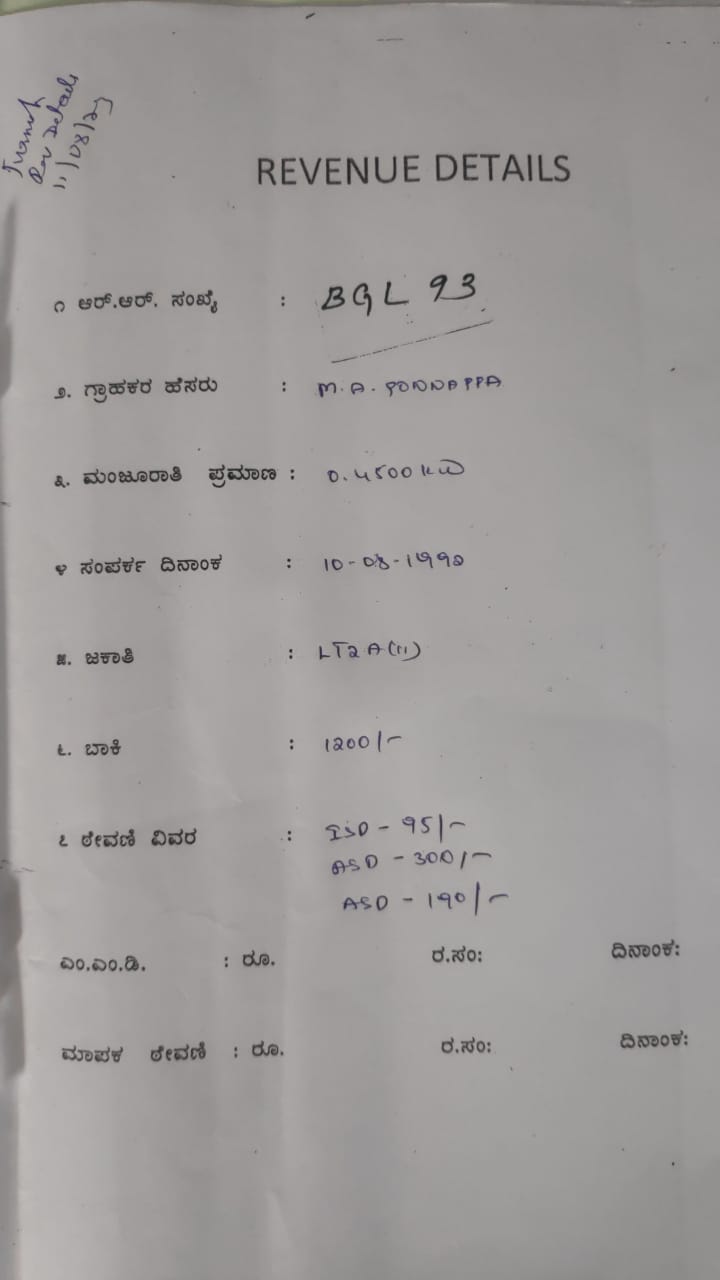 Rev Details
11/08/23
REVENUE DETAILS
೧ ಆರ್.ಆರ್. ಸಂಖ್ಯೆ : BGL 93
೨. ಗ್ರಾಹಕರ ಹೆಸರು : M.A. PONNAPPA
೩. ಮಂಜೂರಾತಿ ಪ್ರಮಾಣ : 0.4500 KW
೪ ಸಂಪರ್ಕ ದಿನಾಂಕ : 10-08-1992
೫. ಜಕಾತಿ : LT2A(ii)
೬. ಬಾಕಿ : 1200/-
೭ ಠೇವಣಿ ವಿವರ : ISD - 95/-
ASD - 300/-
ASD - 190/-
ಎಂ.ಎಂ.ಡಿ. : ರೂ. ರ.ಸಂ: ದಿನಾಂಕ:
ಮಾಪಕ ಠೇವಣಿ : ರೂ. ರ.ಸಂ: ದಿನಾಂಕ: